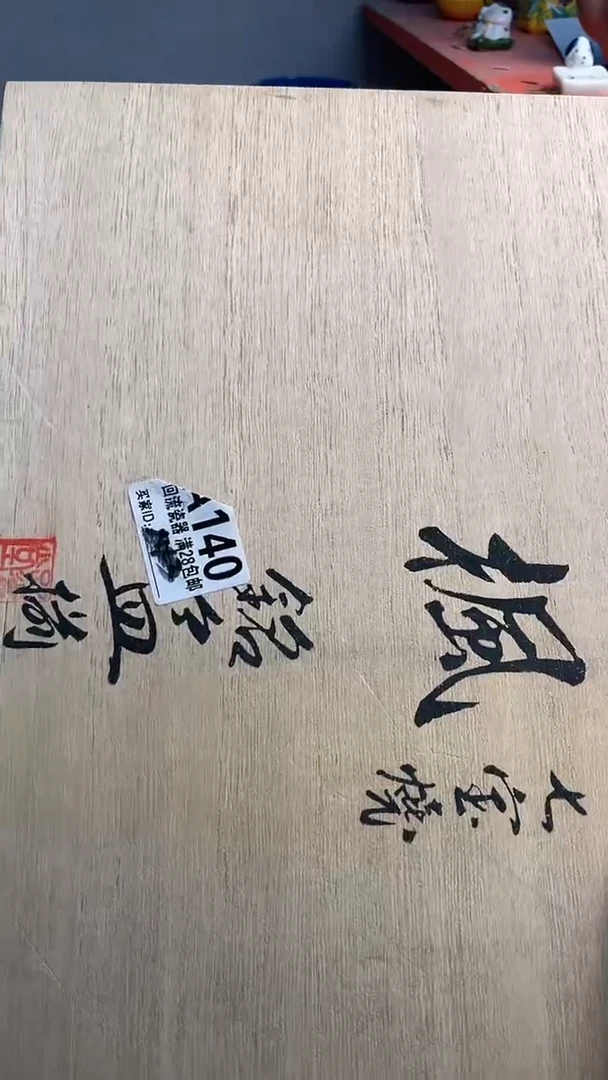 七宝焼
楓
銘々皿揃
A140
回流瓷器 满28包邮
买家ID: